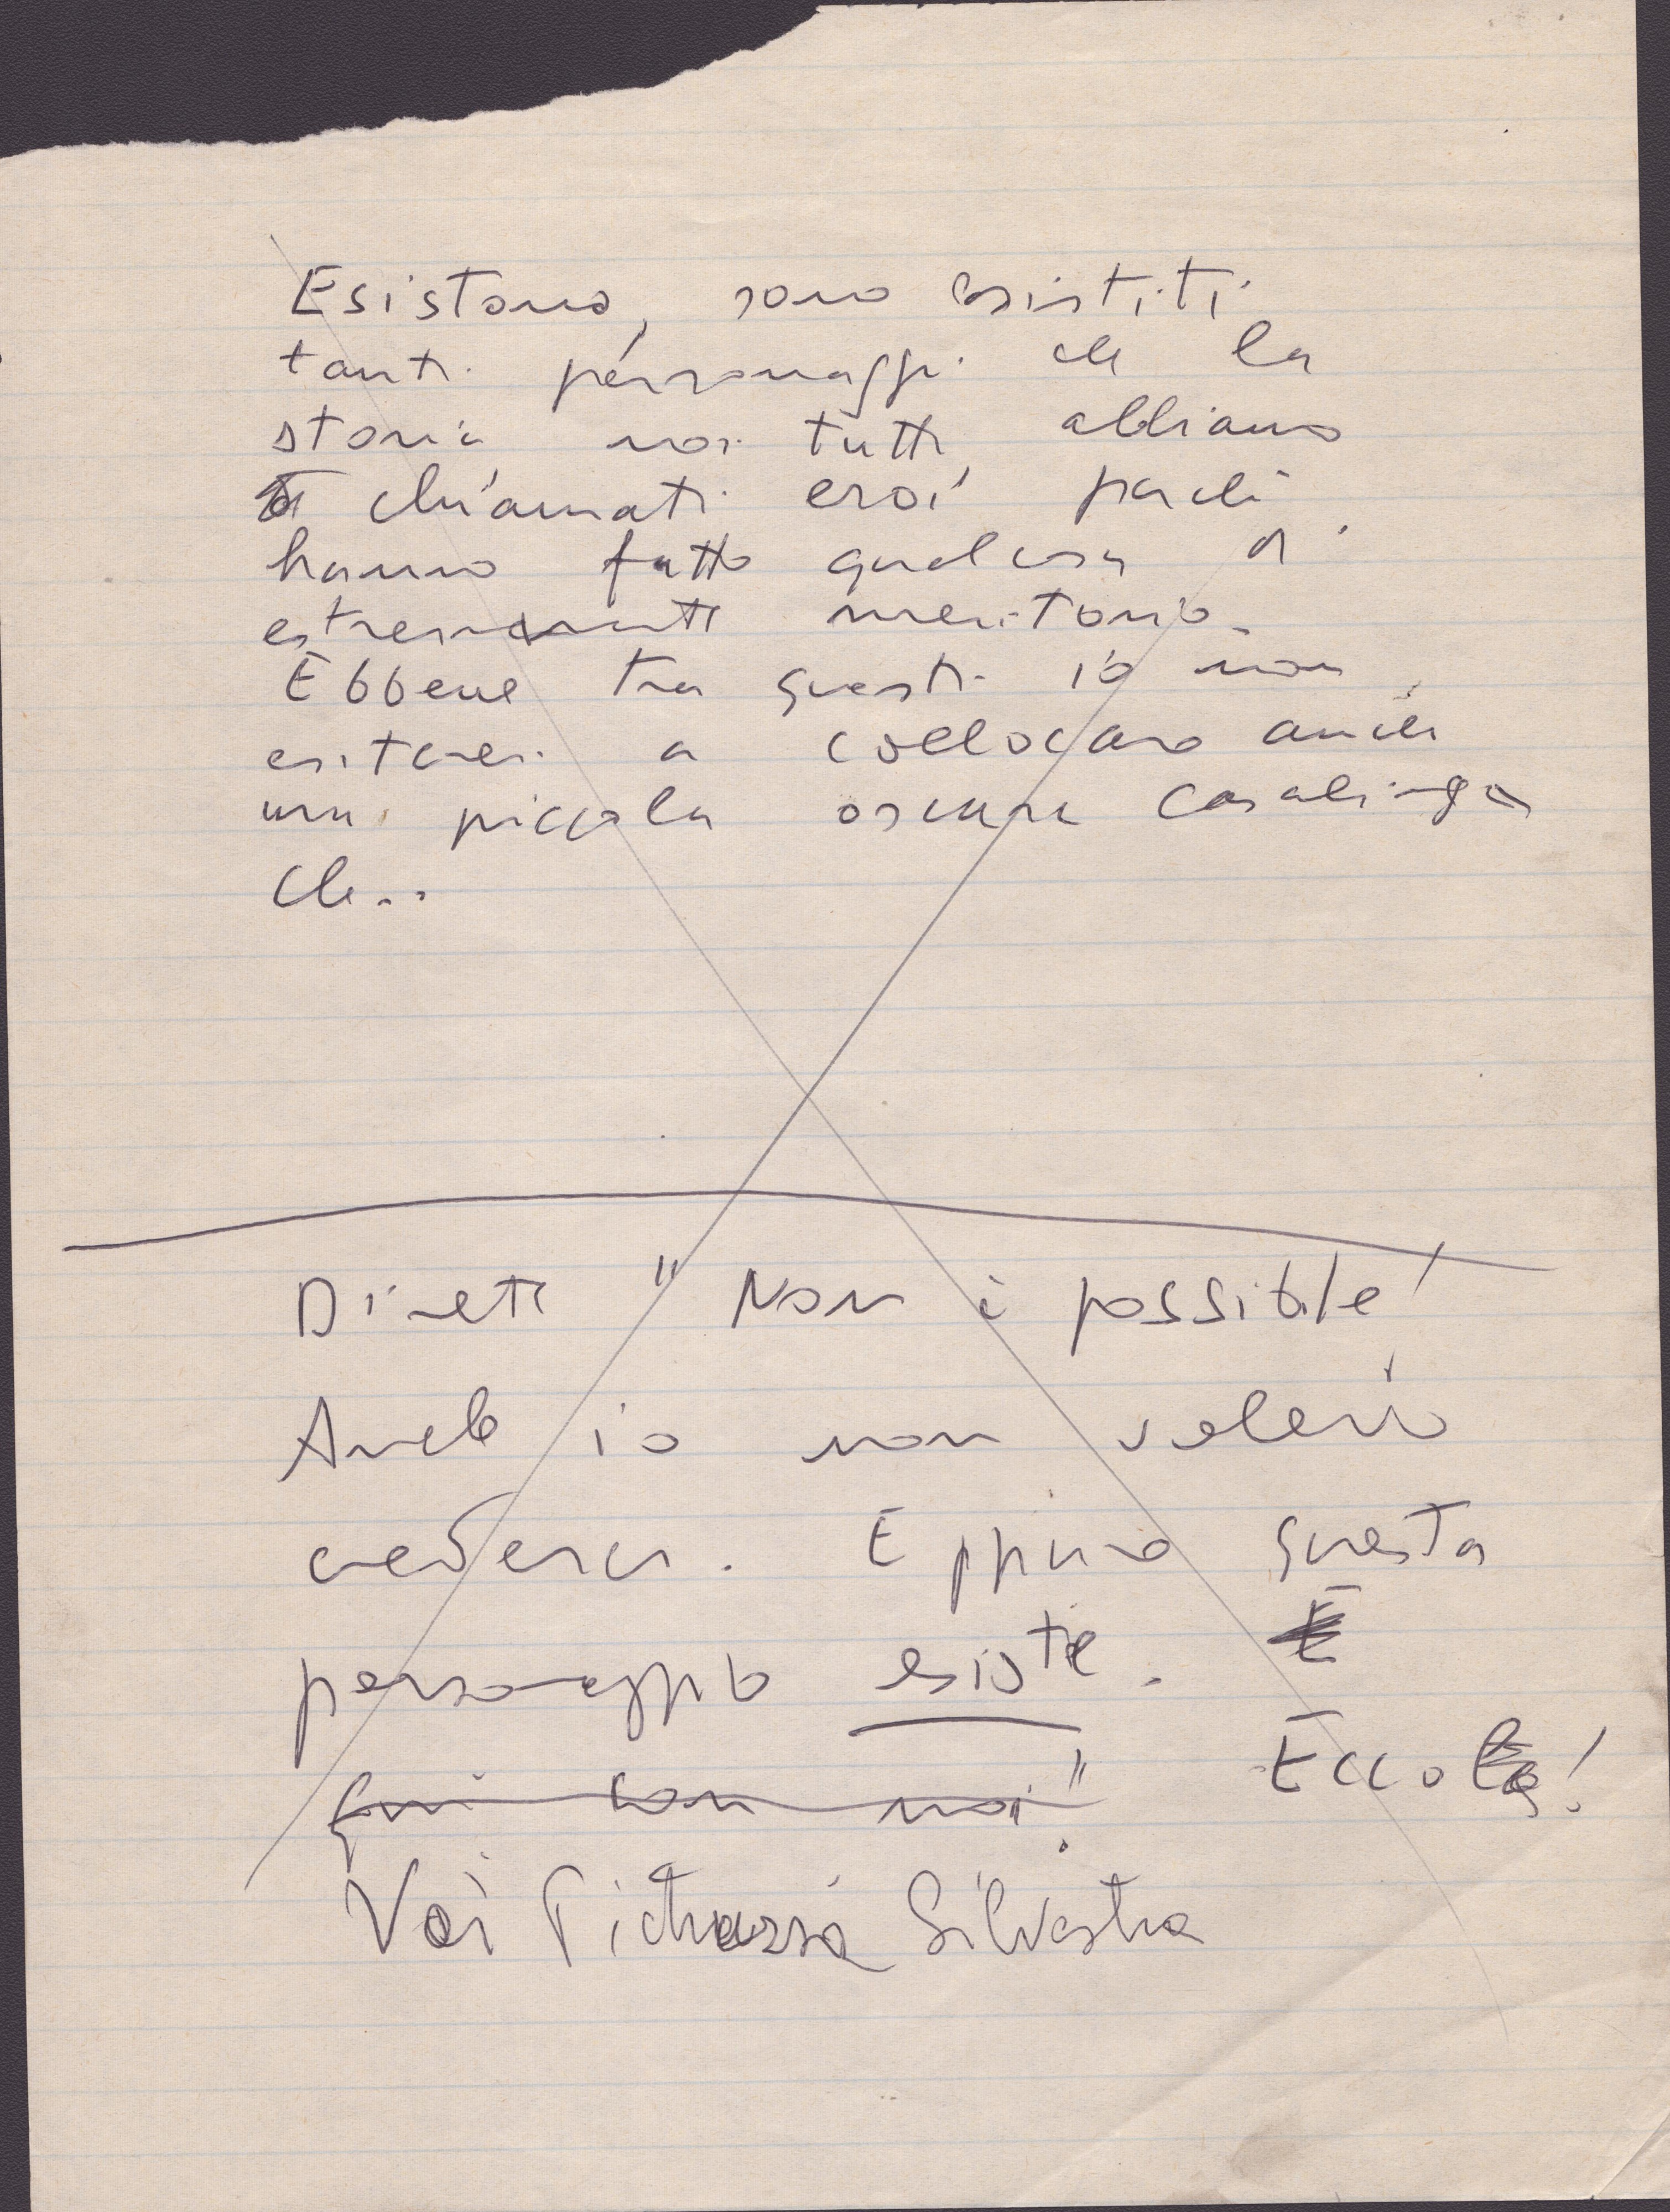 Esistono, sono esistiti
tanti personaggi che la
storia noi tutti abbiamo
chiamati eroi perché
hanno fatto qualcosa di
estremamente meritorio.
Ebbene tra questi io non
esiterei a collocare anche
una piccola oscura casalinga
che...
Direte "Non è possibile!
Anche io non volevo
crederci. Eppure questo
personaggio esiste.
qui con noi!" Eccola!
Voi Silvestra